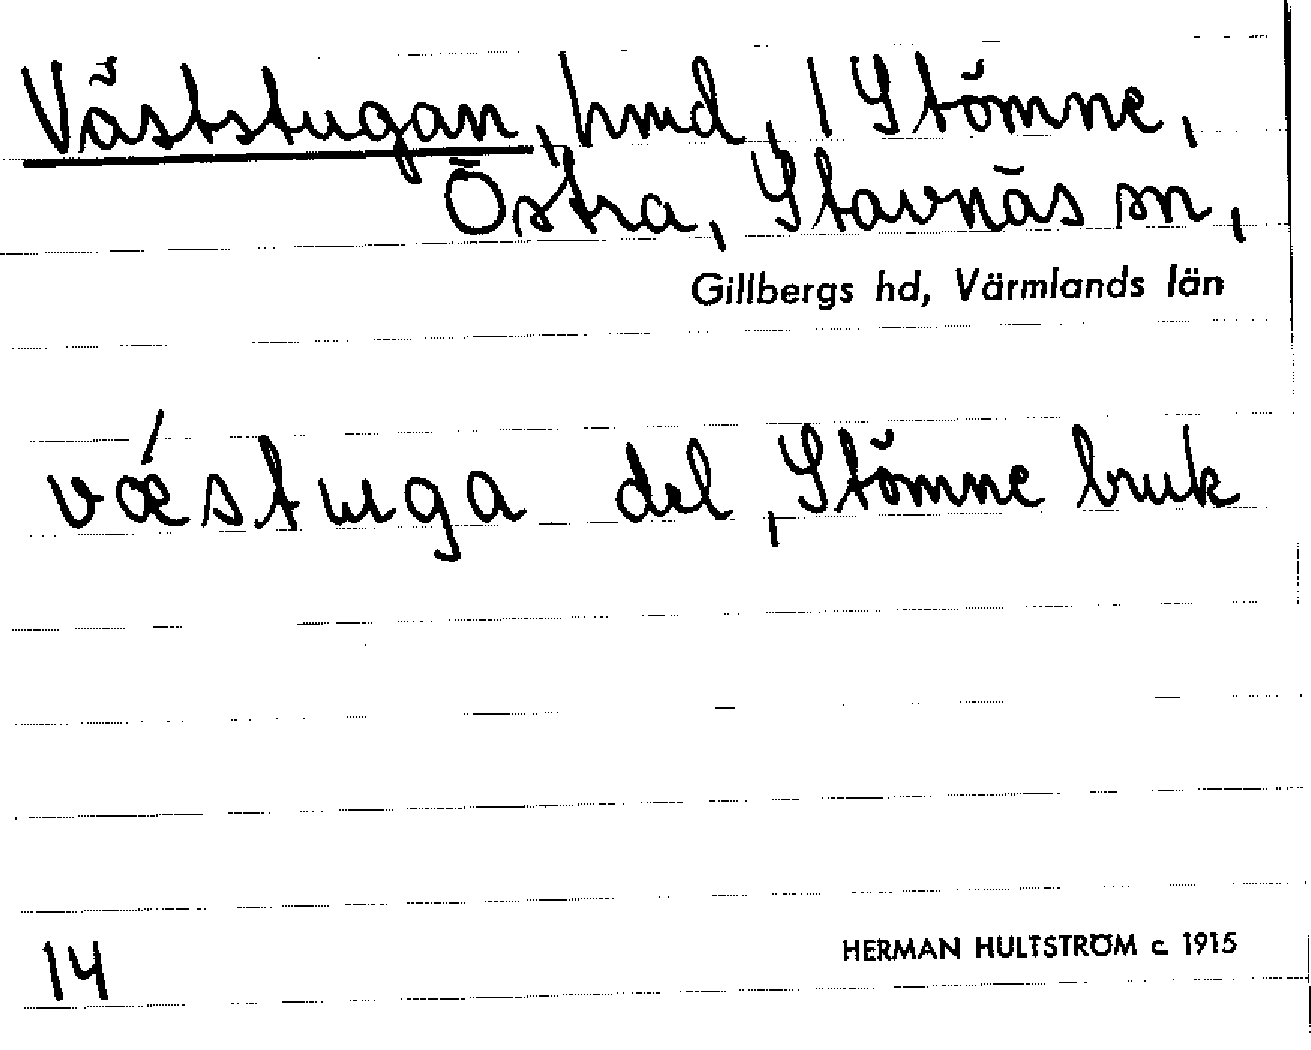 Väststugan, hmd, 1 Stömne,
Östra, Stavnäs sn,
Gillbergs hd, Värmlands län
væ´stuga del, Stömne bruk
14
HERMAN HULTSTRÖM c. 1915